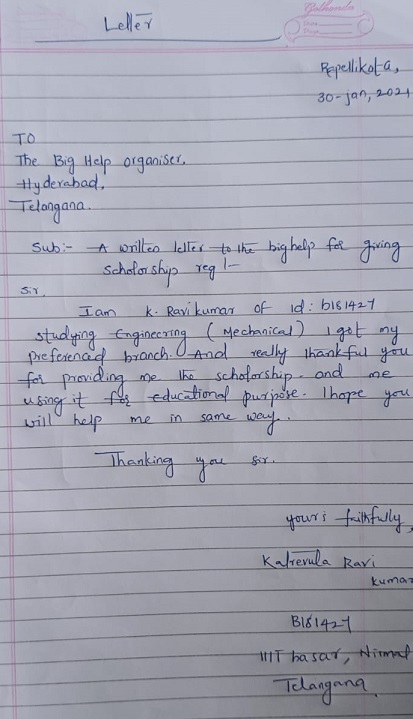 Letter
Repellikota,
30-jan, 2021
TO
The Big Help organiser.
Hyderabad,
Telangana.
Sub:- A written letter to the big help for giving
scholorship reg:-
Sir.
I am K. Ravi kumar of id: b181427
studying Engineering (Mechanical) I got my
preferenad branch. And really thankful you
for providing me the scholorship. and me
using it for educational purpose. I hope you
will help me in same way.
Thanking you sir.
yours faithfully,
Ravi
kumar
B181427
IIIT basar, Nirmal
Telangana.